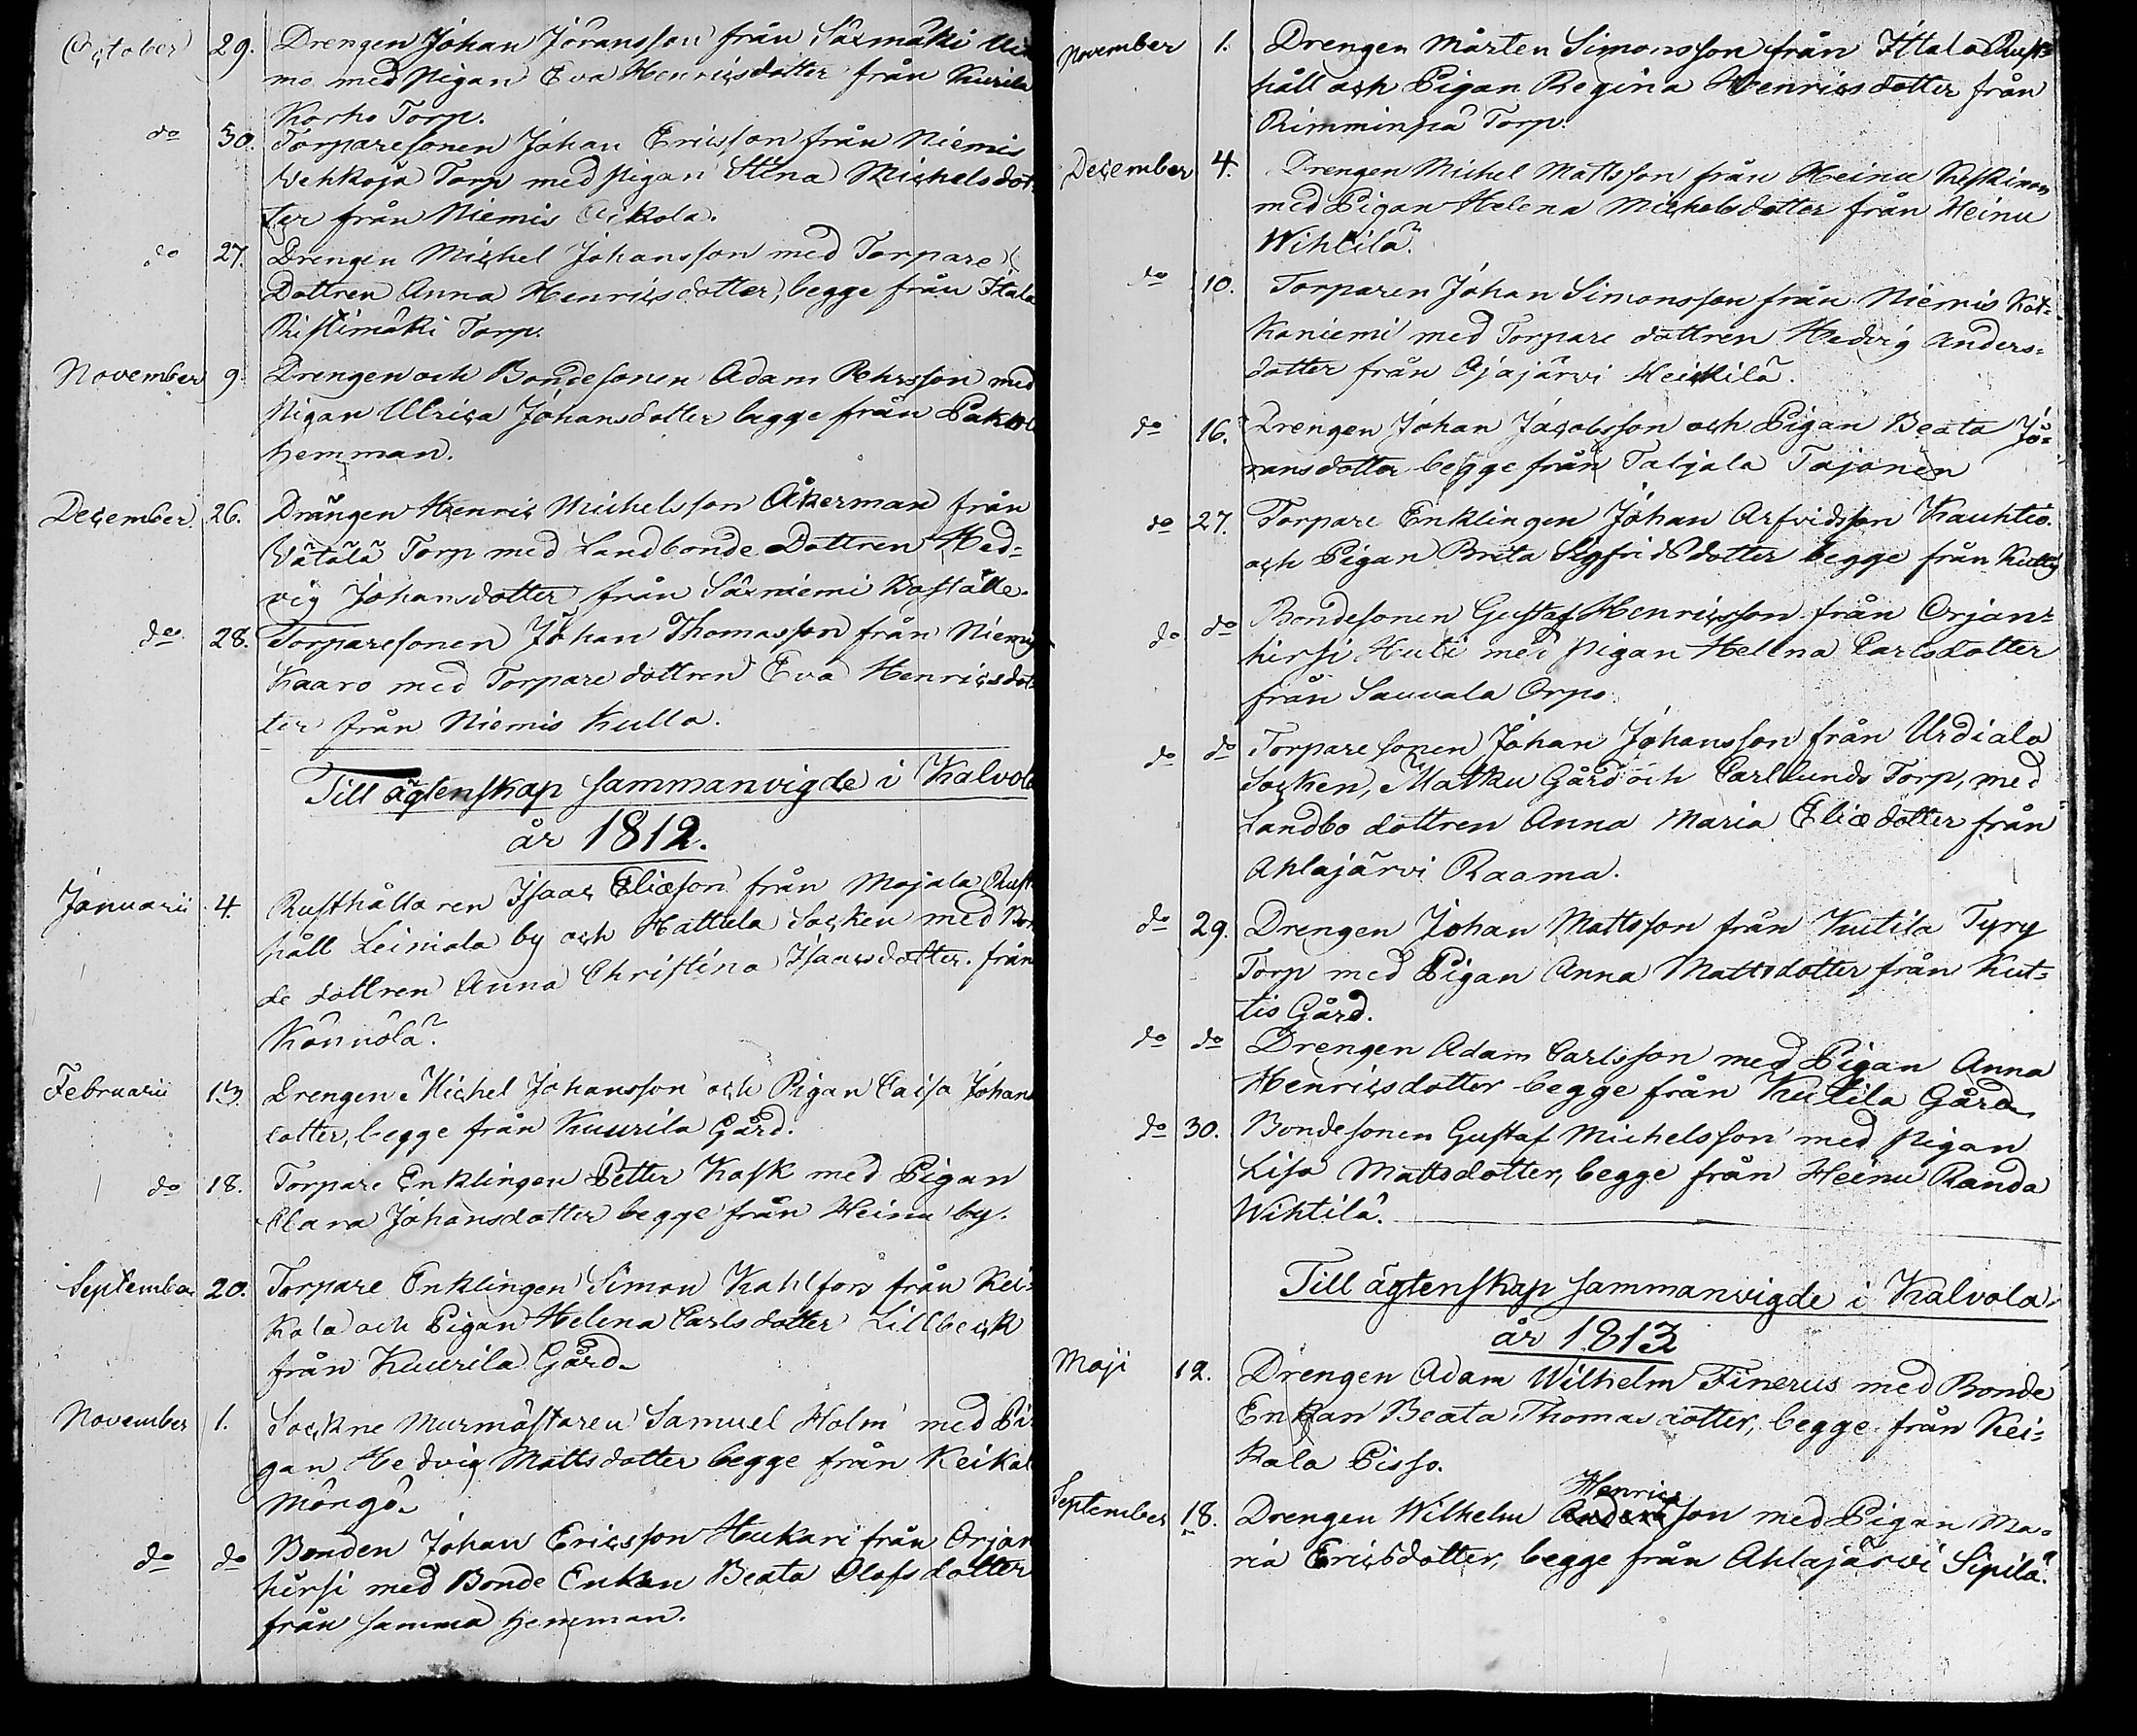 October 29. Drengen Johan Joransson från Särmäki
mo med pigan Eva Henricsdotter från Kurila
Korho Torp.
do 30. Torparesonen Johan Ericsson från Niemis
Vehkoja Torp med pigan Stina Michelsdot:
ter från Niemis Eikola.
do 27. Drengen Michel Johansson med Torpare
Dottren Anna Henricsdotter, begge från Itala
Ristimäki Torp.
November 9 Drengen och Bondesonen Adam Pehrsson med
pigan Ulrica Johansdotter begge från
hemman.
December 26. Drängen Henric Michelsson Åkerman från
Vätälä Torp med Landbonde Dottren Hed=
vig Johansdotter från Säxniemi Boställe.
do 28. Torparesonen Johan Thomasson från Niemis
Kaaro med Torpare dottren Eva Henricsdot
ter från Niemis Kulla.
Till ägtenskap sammanvigde i Kalvola
år 1812.
Januarii 4. Rusthållaren Isaac Eliæson från Mojala Rust
håll Leiniala by och Hattula Socken med Bon
de dottren Anna Christina Isaacsdotter från
Könnölä.
Februarii 13. Drengen Michel Johansson och Pigan Caisa Johans
dotter, begge från Kuurila Gård.
do 18. Torpare Enklingen Petter Kask med Pigan
Clara Johansdotter begge från Heinu by.
September 20. Torpare Enklingen Simon Kahlfors från Kei=
kala och Pigan Helena Carlsdotter Lillbeck
från Kuurila Gård.
November 1. Sockne Murmästaren Samuel Holm med Pi=
gan Hedvig Mattsdotter begge från Keikala
Möngö.
do do Bonden Johan Ericsson Hukari från Orjan
hirsi med Bonde Enkan Beata Olofsdotter
från samma hemman.
November 1. Drengen Mårten Simonsson från Ittala Rust=
håll och Pigan Regina Henricsdotter från
Rimminpä Torp.
December 4. Drengen Michel Mattsson från Heinu
med Pigan Helena Michelsdotter från Heinu
Wihtilä.
do 10. Torparen Johan Simonsson från Niemis Kot=
kaniemi med Torpare dottren Hedvig Anders=
dotter från Ajajärvi Heikkilä.
do 16. Drengen Johan Jacobsson och Pigan Beata Jö=
ransdotter begge från Taljala Tajanen
do 27. Torpare Enklingen Johan Arfvidsson Kauhtio.
och Pigan Brita Sigfridsdotter begge från Kuttis
do do Bondesonen Gustaf Henricsson från Orjan=
hirsi Huti med pigan Helena Carlsdotter
från Sauvala Orpo.
do do Torparesonen Johan Johansson från Urdiala
Socken, Matku Gård och Carlslunds Torp, med
Landbo dottren Anna Maria Eliædotter från
Ahlajärvi Raama.
do 29. Drengen Johan Mattsson från Kutila Tyry
Torp med Pigan Anna Mattsdotter från Kut=
tis Gård.
do do Drengen Adam Carlsson med Pigan Anna
Henricsdotter begge från Kutila Gård.
do 30. Bondesonen Gustaf Michelsson med pigan
Lisa Mattsdotter, begge från Heinu Randa
Wihtilä.
Till ägtenskap sammanvigde i Kalvola
år 1813
Maji 12. Drengen Adam Wilhelm Finerus med Bonde
Enkan Beata Thomasdotter, begge från Kei=
kala Pisso.
Henrics
September 18. Drengen Wilhelm Andersson med Pigan Ma=
ria Ericsdotter, begge från Ahlajärvi Sipilä.